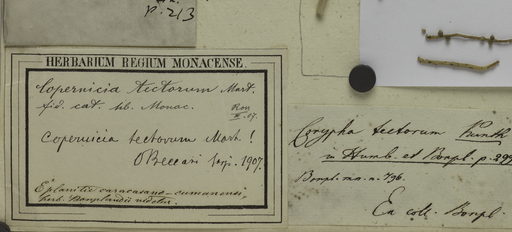 p. 213
HERBARIUM REGIUM MONACENSE.
Copernicia tectorum Mart.
fid. cat. hb. Monac.
Copernicia tectorum Mart.!
O Beccari 1907.
E planitie caracasano-cumanensi,
herb. Bonplandii videtur.
Corypha tectorum Kunth
in Humb. et Bonpl. p. 299
Bonpl. n. 796.
Ex coll. Bonpl.